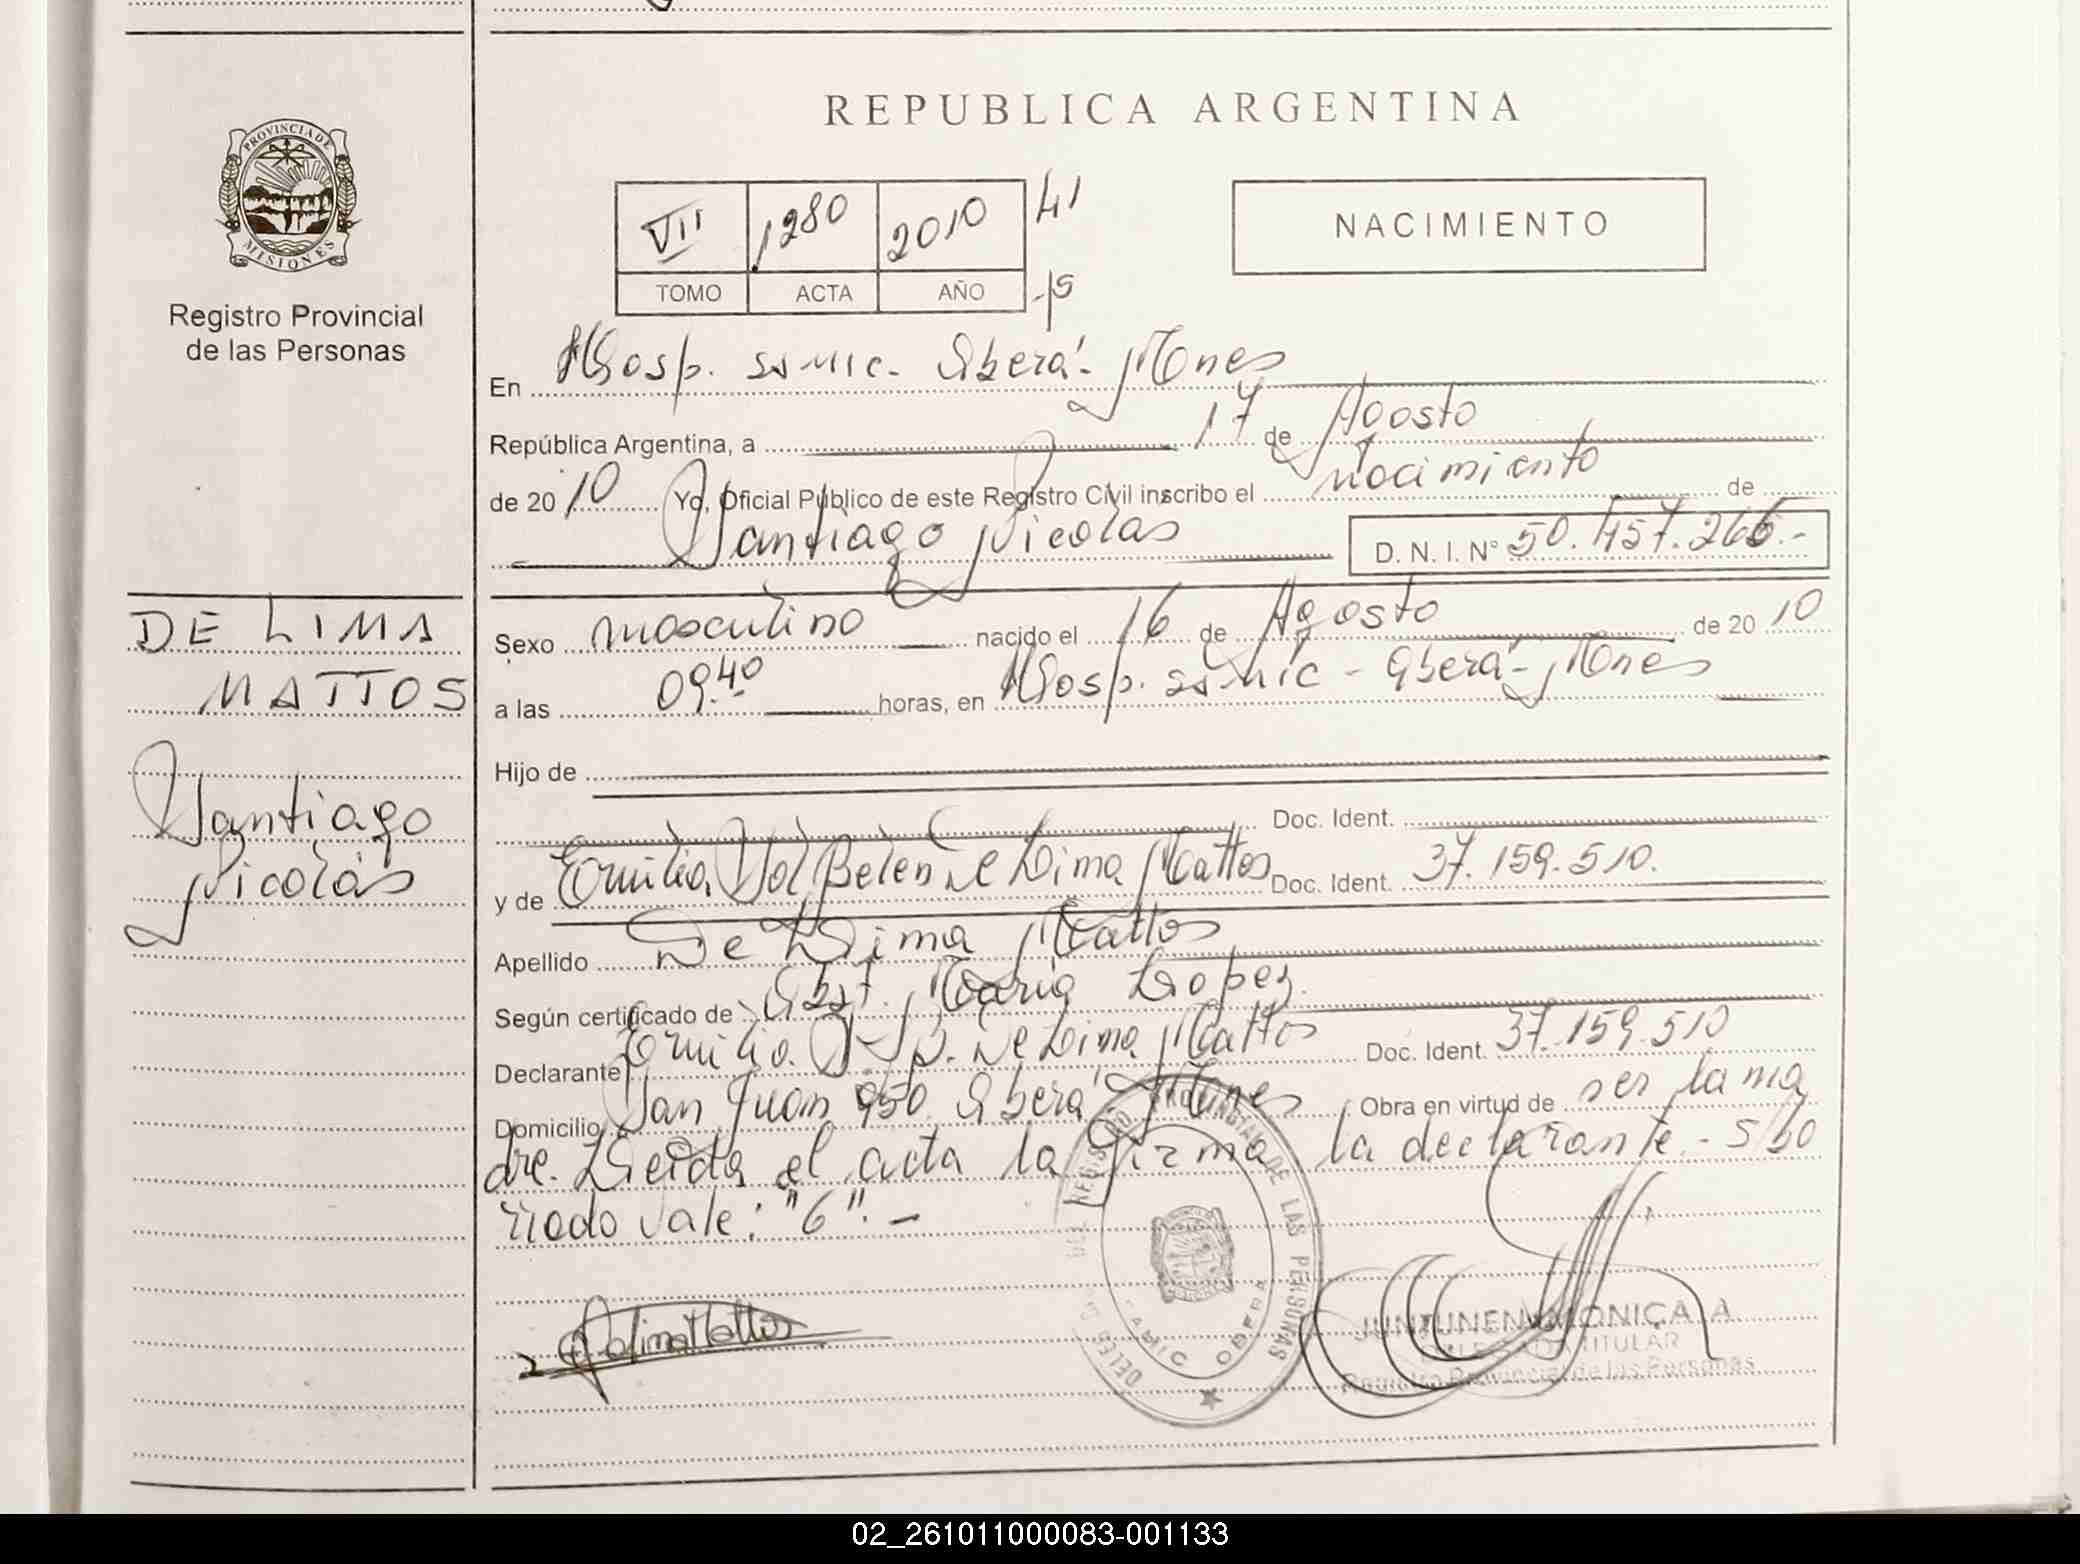 REPUBLICA ARGENTINA
PROVINCIA DE MISIONES
Registro Provincial
de las Personas
VII 1280 2010 41
TOMO ACTA AÑO
NACIMIENTO
En Hosp. SAMIC - Oberá - Mnes
República Argentina, a 17 de Agosto
de 2010 Yo, Oficial Público de este Registro Civil inscribo el nacimiento de
Santiago Nicolás D. N. I. Nº 50.457.266.-
DE LIMA
MATTOS
Santiago
Nicolás
Sexo masculino nacido el 16 de Agosto de 2010
a las 09.40 horas, en Hosp. SAMIC - Oberá - Mnes
Hijo de
Doc. Ident.
y de Emilia Sol Belén De Lima Mattos Doc. Ident. 37.159.510.
Apellido De Lima Mattos
Según certificado de Obst. María Lopez.
Declarante Emilia S. B. De Lima Mattos Doc. Ident. 37.159.510
Domicilio San Juan 950 Oberá Mnes Obra en virtud de ser la ma
dre. Leida el acta la firma la declarante.- S/bo
rrado vale: "6".-
DELEG. DEL REGISTRO PROVINCIAL DE LAS PERSONAS
SAMIC OBERA
JUNTUNEN MONICA A
DELEGADA TITULAR
Registro Provincial de las Personas
02_261011000083-001133